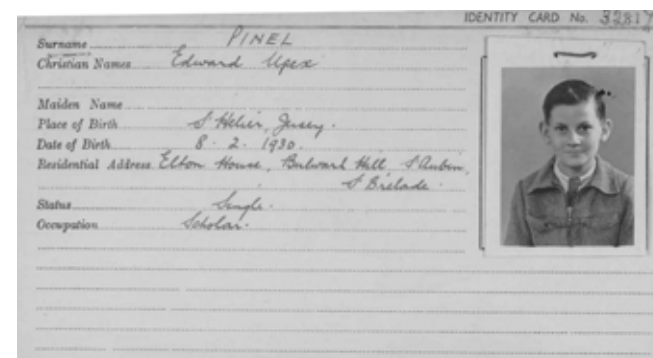 IDENTITY CARD No. 32817
Surname PINEL
Christian Names Edward Upex
Maiden Name
Place of Birth St Helier, Jersey.
Date of Birth 8. 2. 1930.
Residential Address Elton House, Bulwark Hill, St Aubin,
St Brelade.
Status Single.
Occupation Scholar.